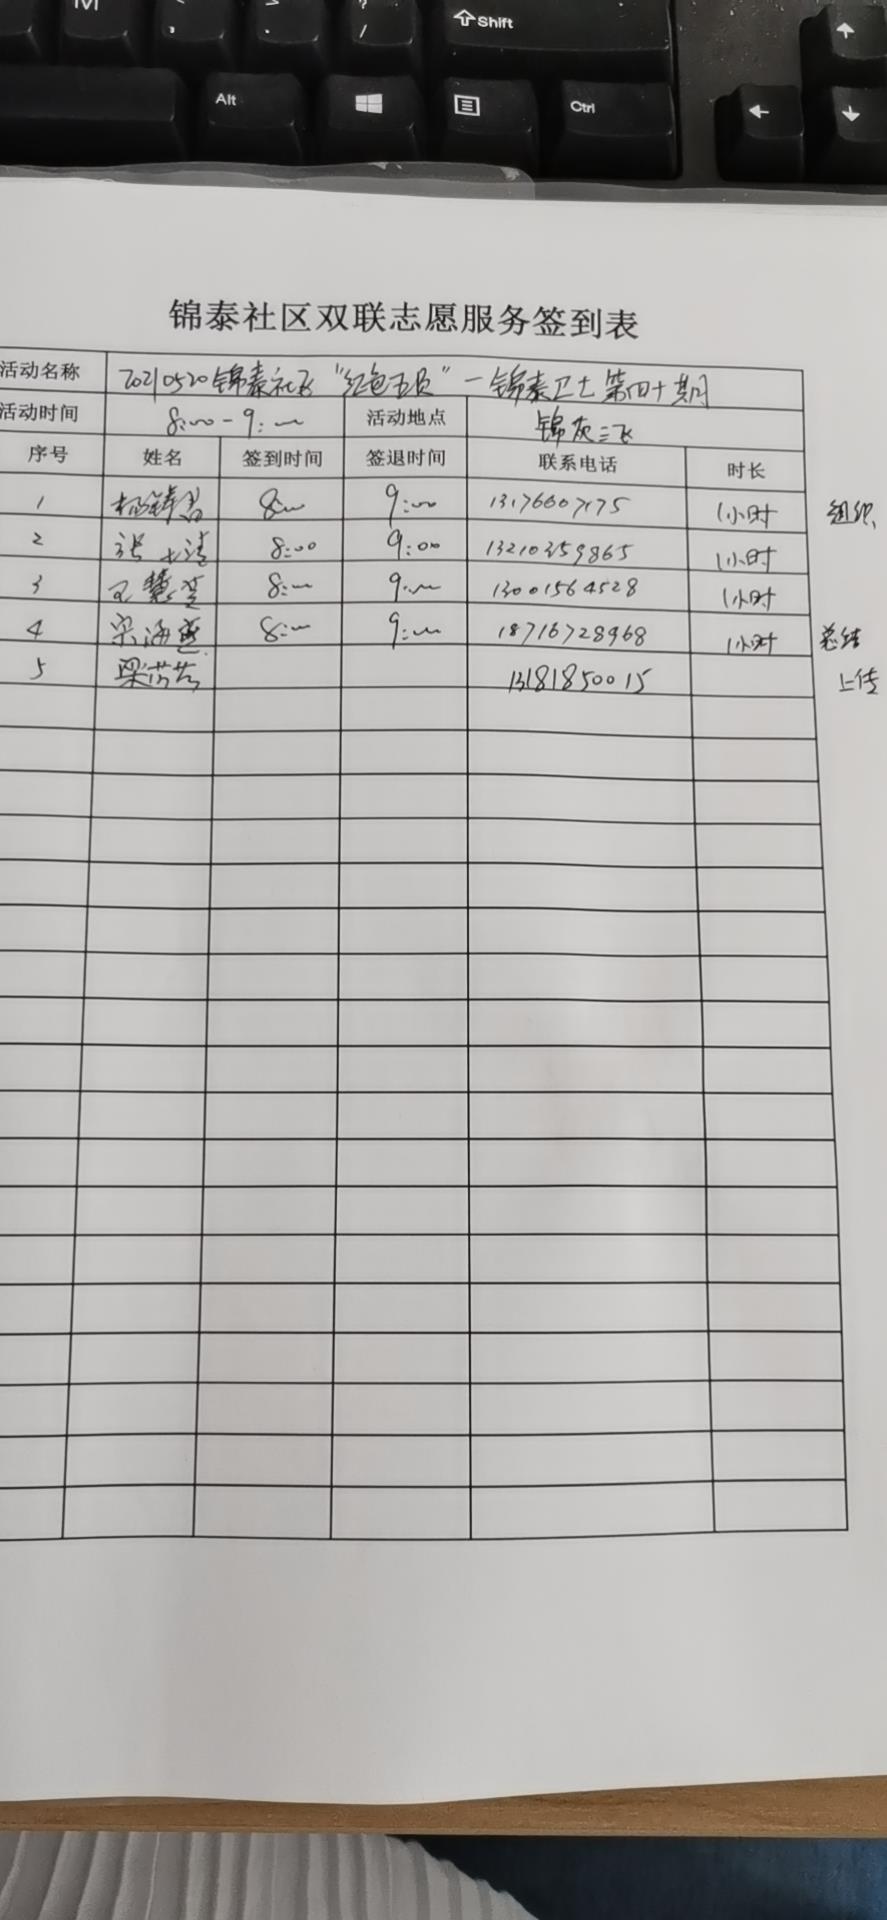 Shift
Alt
Ctrl
锦泰社区双联志愿服务签到表
活动名称 20210520锦泰社区"红色五员"一锦泰卫士第四十期
活动时间 8:00-9:00 活动地点 锦灰三飞
序号 姓名 签到时间 签退时间 联系电话 时长
1 8:00 9:00 13176607175 1小时 组织
2 张 清 8:00 9:00 13210359865 1小时
3 王慧莹 8:00 9:00 13001564528 1小时
4 宋海 8:00 9:00 18716728968 1小时 总结
5 梁芳芳 13181850015 上传